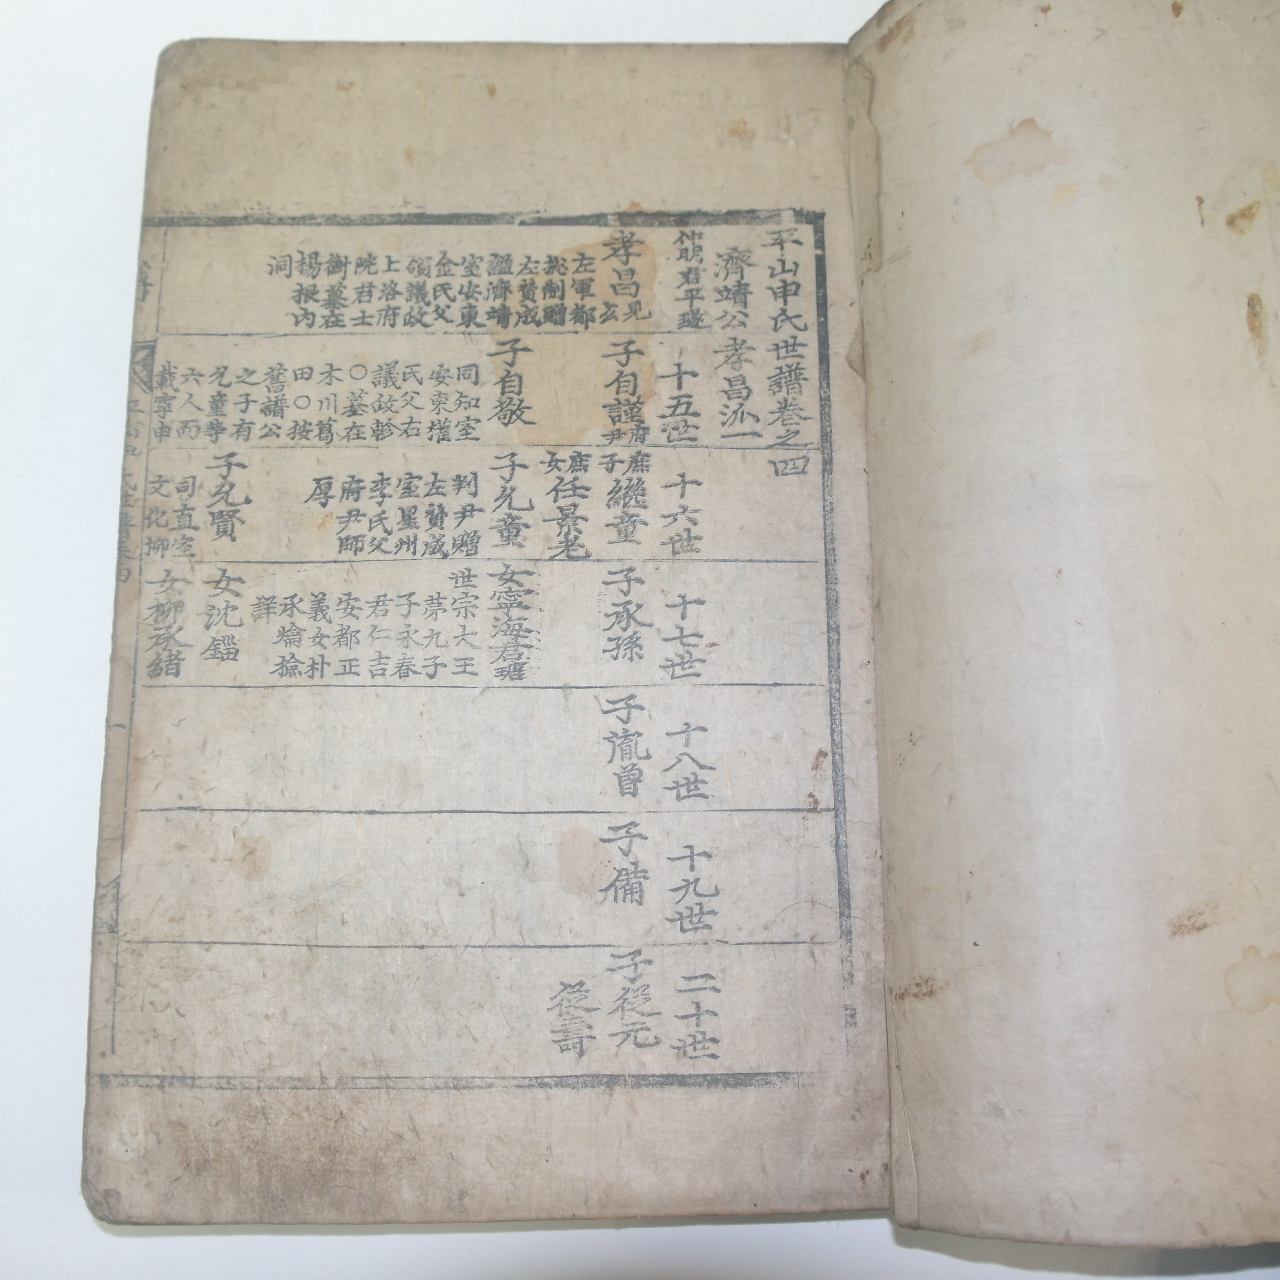 平山申氏世譜卷之四
濟靖公孝昌派一
十五世
十六世
十七世
十八世
十九世
二十世
孝昌見
左軍都
摠制贈
左贊成
謚濟靖
室安東
金氏父
領議政
上洛府
院君士
衡墓在
楊根內
洞
子自謹府尹
子自敬
同知室
安東權
氏父右
議政軫
○墓在
木川葛
田○按
舊譜公
之子有
允童等
六人而
載寧申
庶子繼童
庶女任景老
子允童
判尹贈
左贊成
室星州
李氏父
府尹師
厚
子允賢
司直室
文化柳
子承孫
女寧海君瑭
世宗大王
第九子
子永春
君仁吉
安都正
義女朴
承爚
詳
女沈錙
女柳承緒
子胤曾
子備
子從元
從壽